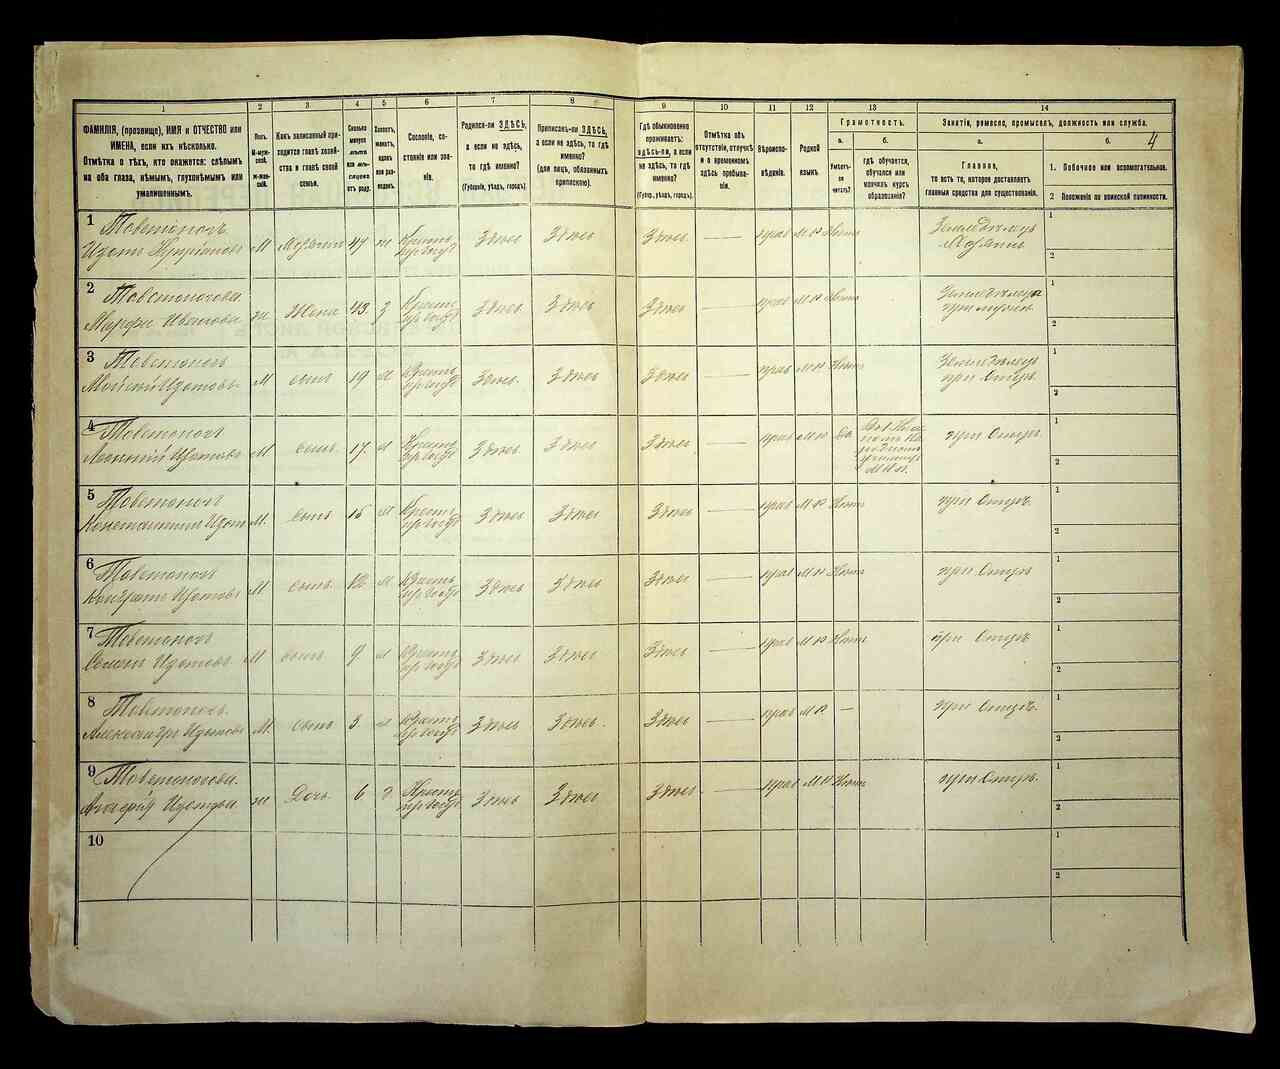 1 2 3 4 5 6 7 8 9 10 11 12 13 14
ФАМИЛІЯ, (прозвище), ИМЯ и ОТЧЕСТВО или
ИМЕНА, если ихъ нѣсколько.
Отмѣтка о тѣхъ, кто окажется: слѣпымъ
на оба глаза, нѣмымъ, глухонѣмымъ или
умалишеннымъ.
Полъ.
М-муж-
ской.
Ж-жен-
скій.
Какъ записанный при-
ходится главѣ хозяй-
ства и главѣ своей
семьи.
Сколько
минуло
лѣтъ
или мѣ-
сяцевъ
отъ роду.
Холостъ,
женатъ,
вдовъ
или раз-
веденъ.
Сословіе, со-
стояніе или зва-
ніе.
Родился-ли ЗДѢСЬ,
а если не здѣсь,
то гдѣ именно?
(Губернія, уѣздъ, городъ).
Приписанъ-ли ЗДѢСЬ,
а если не здѣсь, то гдѣ
именно?
(для лицъ, обязанныхъ
припискою).
Гдѣ обыкновенно
проживаетъ:
здѣсь-ли, а если
не здѣсь, то гдѣ
именно?
(Губер., уѣздъ, городъ).
Отмѣтка объ
отсутствіи, отлучкѣ
и о временномъ
здѣсь пребыва-
ніи.
Вѣроиспо-
вѣданіе.
Родной
языкъ.
Грамотность.
а.
Умѣетъ-
ли
читать?
б.
гдѣ обучается,
обучался или
кончилъ курсъ
образованія?
Занятіе, ремесло, промыселъ, должность или служба.
а.
Главное,
то есть то, которое доставляетъ
главныя средства для существованія.
б.
4
1. Побочное или вспомогательное.
2 Положеніе по воинской повинности.
1 Товстоногъ
Изотъ Купріяновъ М Хозяинъ 47 ж Крест. Здѣсь Здѣсь Здѣсь — прав М Р Нѣтъ Земледѣлецъ
Хозяинъ 1 2
2 Товстоногова
Марфа Иванова ж Жена 43 З Крест. Здѣсь Здѣсь Здѣсь — прав М Р Нѣтъ
при мужѣ 1 2
3 Товстоногъ
Изотовъ М сынъ 19 Х Крест. Здѣсь. Здѣсь Здѣсь — прав М Р Нѣтъ Земледѣлецъ
при Отцѣ. 1 2
4 Товстоногъ
Изотовъ М сынъ 17. Х Крест. Здѣсь. Здѣсь Здѣсь — прав М Р Да при Отцѣ. 1 2
5 Товстоногъ
Константинъ Изот М. сынъ 15 Х Крест. Здѣсь Здѣсь Здѣсь — прав М Р Нѣтъ при Отцѣ. 1 2
6 Товстоногъ
Изотовъ М сынъ 12. Х Крест. Здѣсь Здѣсь Здѣсь — прав М Р Нѣтъ при Отцѣ 1 2
7 Товстоногъ
Изотовъ М сынъ 9. Х Крест. Здѣсь Здѣсь Здѣсь — прав М Р Нѣтъ при Отцѣ 1 2
8 Товстоногъ
Александръ Изотовъ М. сынъ 3. Х Крест. Здѣсь Здѣсь. Здѣсь — прав М Р. — при Отцѣ. 1 2
9 Товстоногова.
Изотова ж Дочь 6. Д Крест. Здѣсь Здѣсь Здѣсь. — прав М Р Нѣтъ при Отцѣ. 1 2
10 1 2